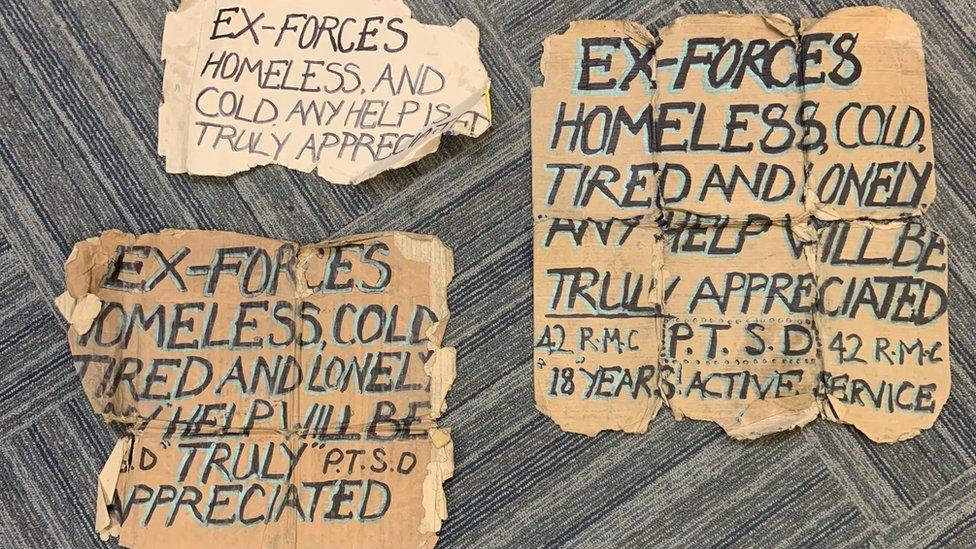 EX-FORCES
HOMELESS, AND
COLD, ANY HELP IS
TRULY
EX-FORCES
HOMELESS, COLD,
TIRED AND LONELY
ANY HELP WILL BE
TRULY APPRECIATED
42 R.M.C P.T.S.D 42 R.M.C
18 YEARS! ACTIVE SERVICE
EX-FORCES
HOMELESS, COLD
TIRED AND LONELY
ANY HELP WILL BE
"TRULY" P.T.S.D
APPRECIATED